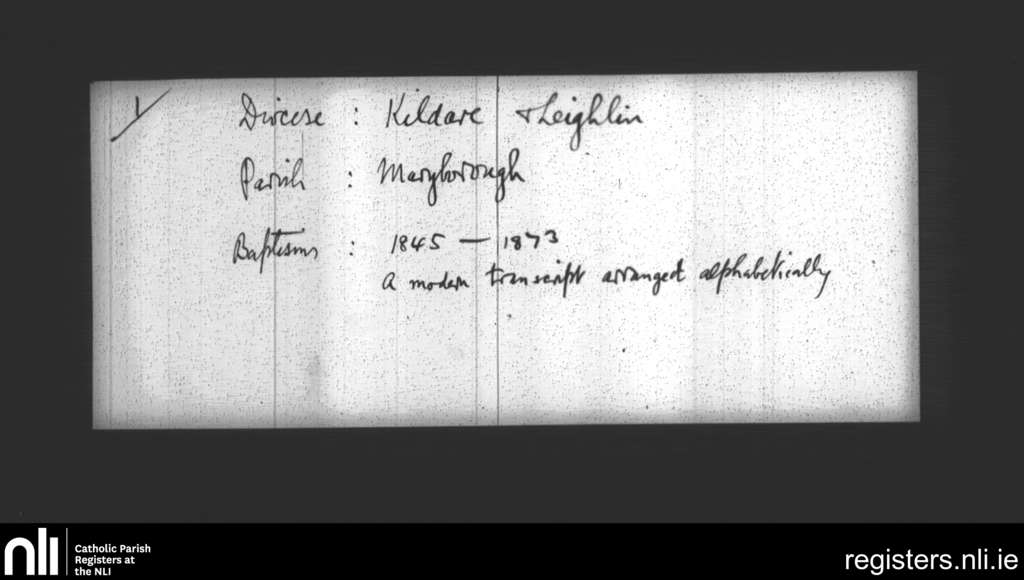 Diocese : Kildare & Leighlin
Parish : Maryborough
Baptisms : 1845 — 1873
A modern transcript arranged alphabetically
nli
Catholic Parish
Registers at
the NLI
registers.nli.ie